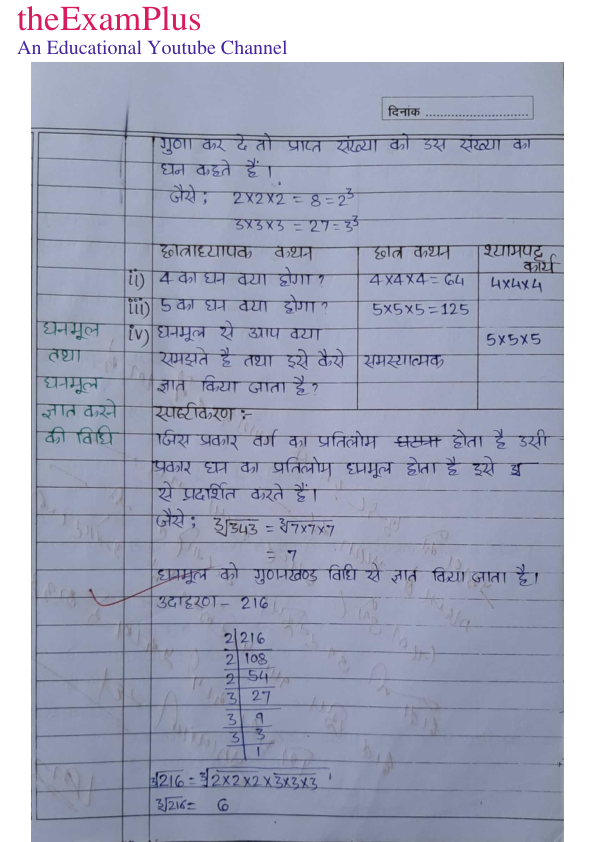 theExamPlus
An Educational Youtube Channel
दिनांक ..............................
गुणा कर दे तो प्राप्त संख्या को उस संख्या का
घन कहते हैं।
जैसे; 2×2×2 = 8 = 2³
3×3×3 = 27 = 3³
छात्राध्यापक कथन छात्र कथन श्यामपट्ट कार्य
ii) 4 का घन क्या होगा? 4×4×4 = 64 4×4×4
iii) 5 का घन क्या होगा? 5×5×5 = 125 5×5×5
घनमूल तथा घनमूल ज्ञात करने की विधि
iv) घनमूल से आप क्या
समझते है तथा इसे कैसे समस्यात्मक
ज्ञात किया जाता है?
स्पष्टीकरण :-
जिस प्रकार वर्ग का प्रतिलोम होता है उसी
प्रकार घन का प्रतिलोम घनमूल होता है इसे
से प्रदर्शित करते हैं।
जैसे; ∛343 = ∛7×7×7
= 7
घनमूल को गुणनखण्ड विधि से ज्ञात किया जाता है।
उदाहरण - 216
2 | 216
2 | 108
2 | 54
3 | 27
3 | 9
3 | 3
| 1
∛216 = ∛2×2×2×3×3×3
∛216 = 6